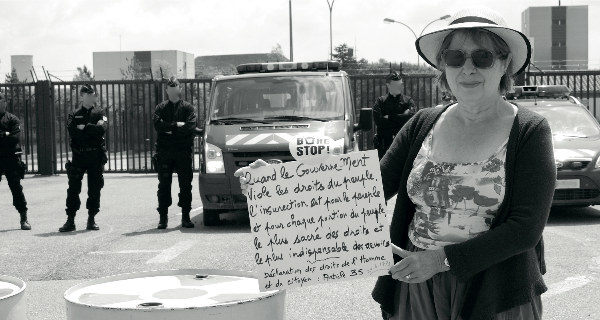 BURE
STOP!
Quand le Gouverne Ment
Viole les droits du peuple,
l'insurection est pour le peuple
et pour chaque portion du peuple
le plus sacré des droits et
le plus indispensable des devoirs
Déclaration des droits de l'Homme
et du citoyen : Article 35